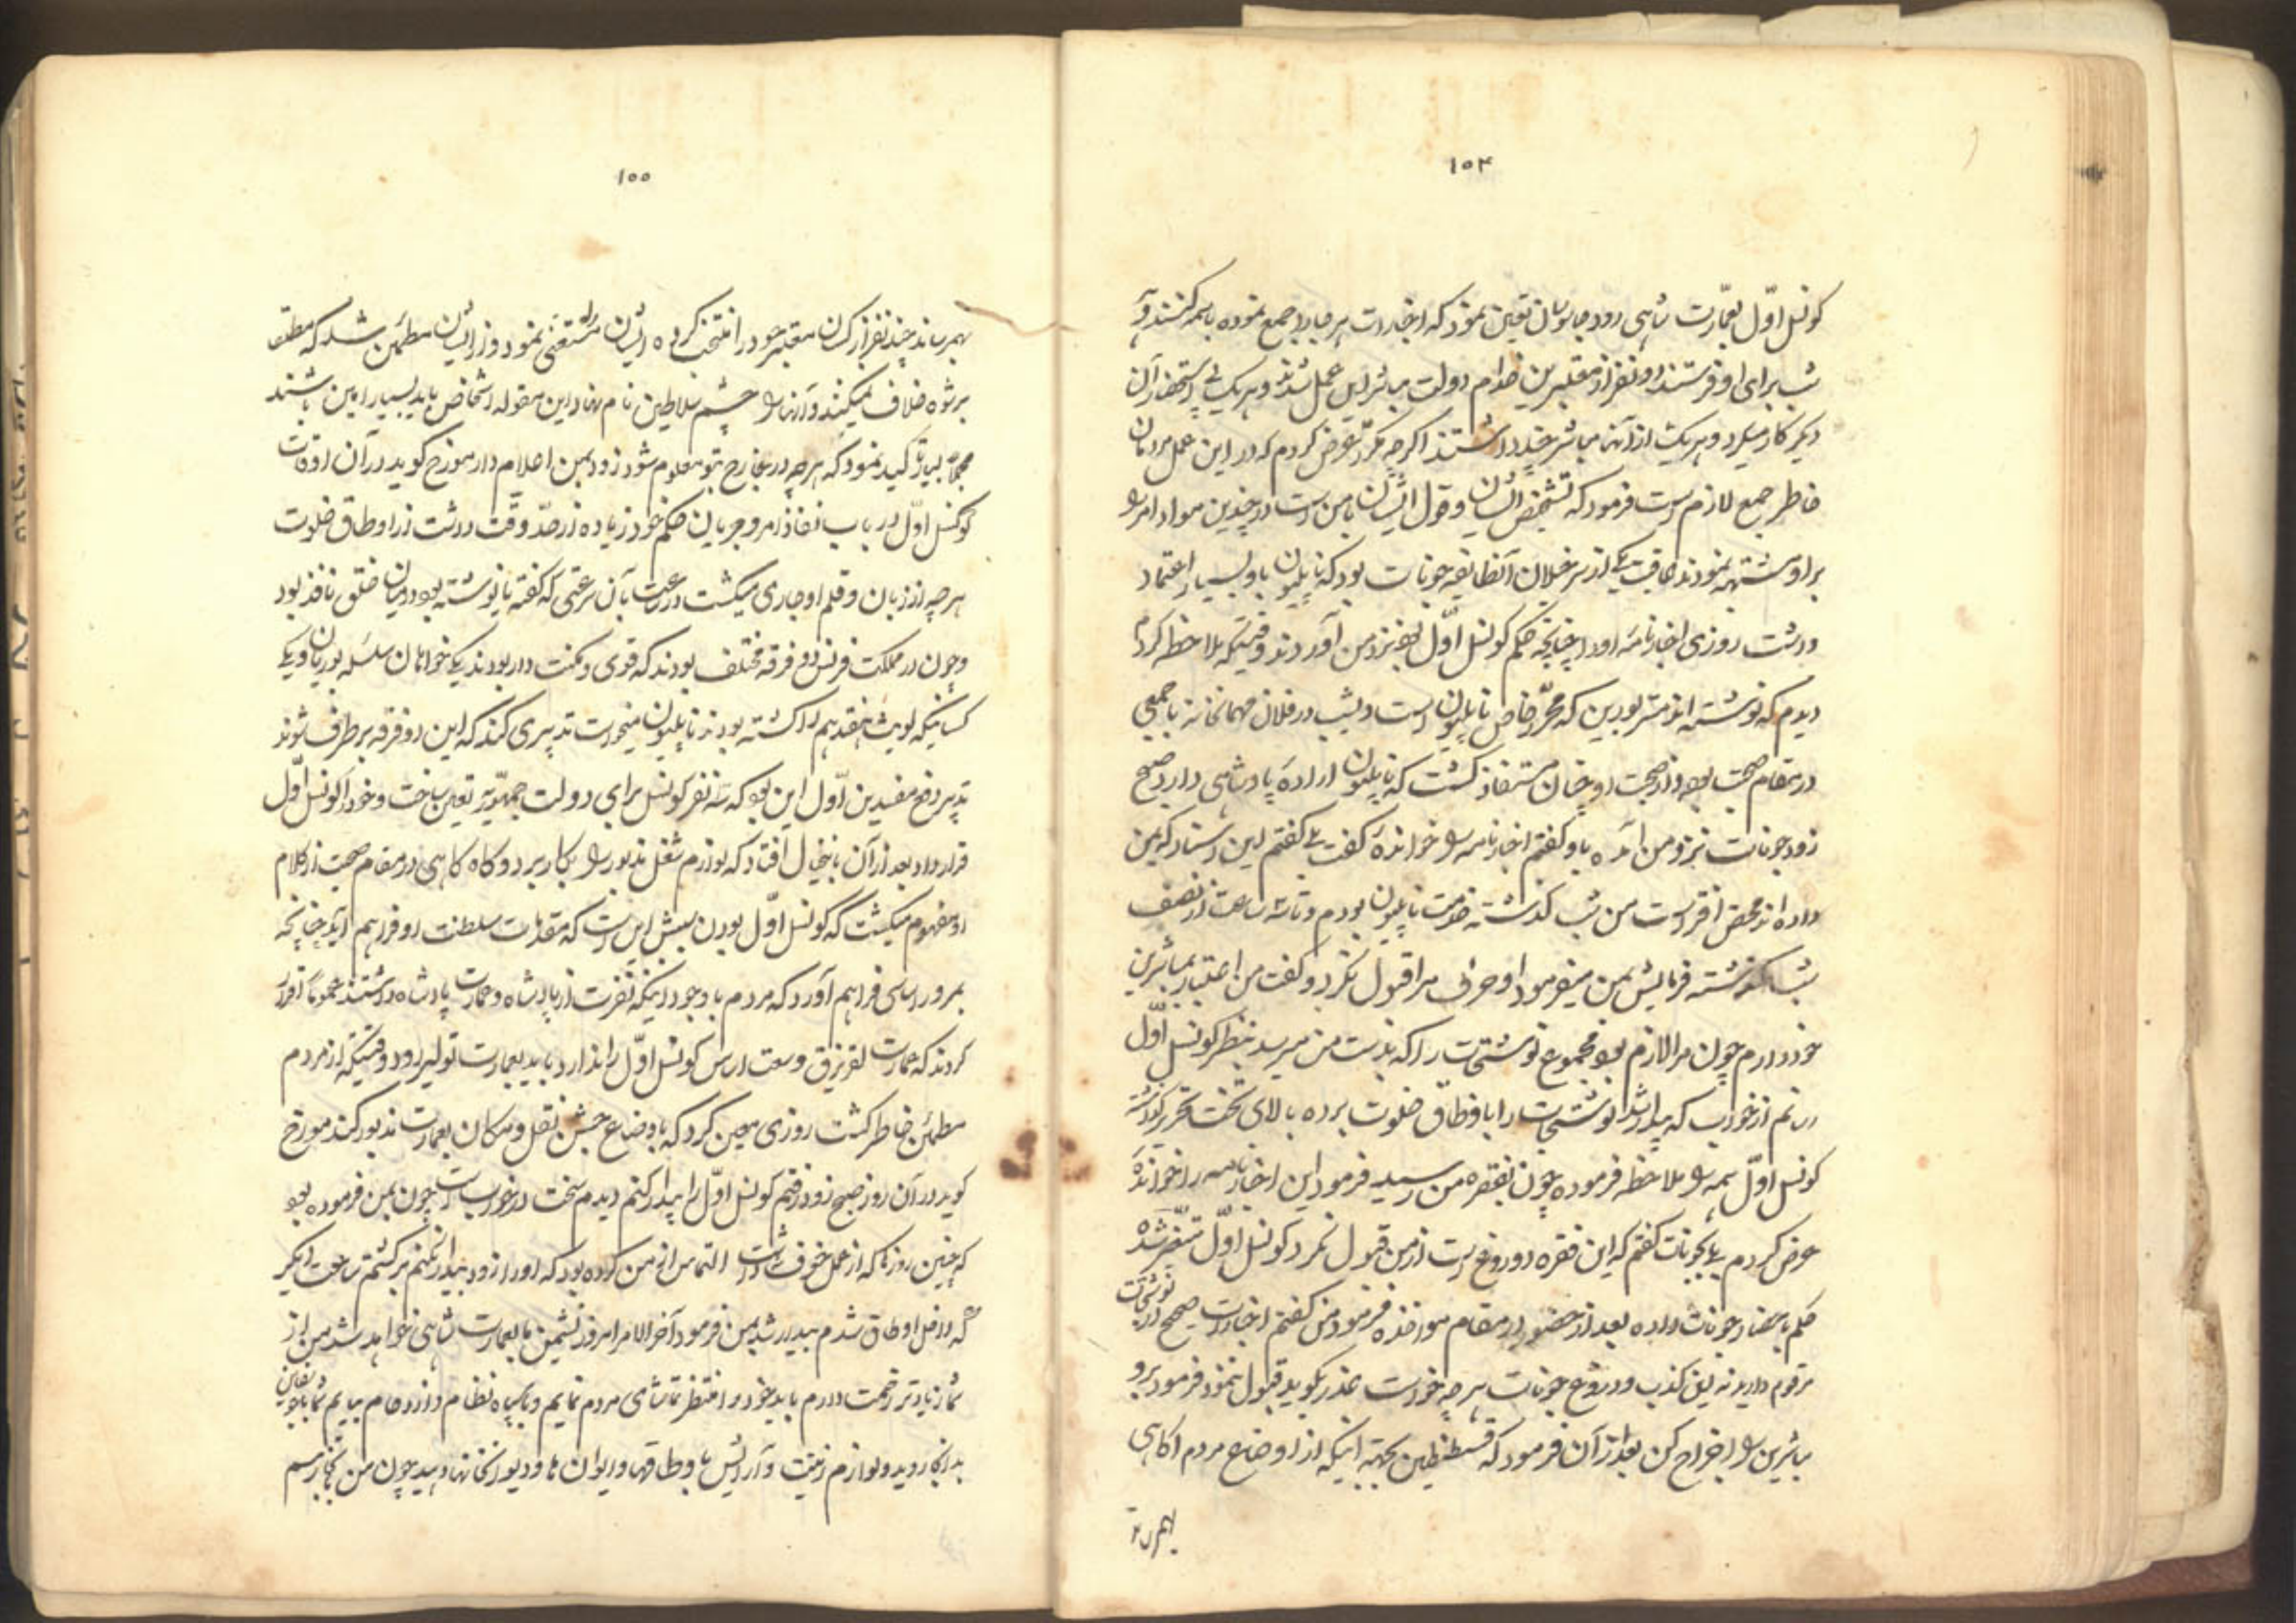 ۱۵۴
کونسل اوّل بعمارت شاهی رود جاسوسان تعیین نمود که اخبارات هر جا را جمع نموده باسمه کنند و هر
شب برای او فرستند دو نفر از معتبرین خدام دولت مباشر این عمل شدند و هر یک بی استحضار آن
دیگر کار میکرد و هر یک از آنها مباشر چند داشتند اگرچه مکرّر عرض کردم که در این عمل مردمان
خاطر جمع لازم است فرمود که تشخیص ایشان و قول ایشان با من است در چندین مواد امر را
بر او مشتبه نمودند عاقبت یکی از سرخیلان آنطایفه جونات بود که ناپلیون باو بسیار اعتماد
داشت روزی اخبارنامه او را چنانچه حکم کونسل اوّل بود نزد من آوردند وقتیکه ملاحظه کردم
دیدم که نوشته اند مستر بورین که محرّر خاص ناپلیون است دیشب در فلان مهمانخانه با جمعی
در مقام صحبت بود و از صحبت او چنان مستفاد کشت که ناپلیون اراده پادشاهی دارد صبح
زود جونات نزد من آمده باو کفتم اخبارنامه را خوانده کفت بلی کفتم این اسناد که بمن
داده اند محض افتراست من شب کذشته خدمت ناپلیون بودم و تا سه ساعت از نصف
شب کذشته فرمایش بمن میفرمود او حرف مرا قبول نکرد و کفت من اعتبار بمباشرین
خود دارم چون مرا لازم بود مجموع نوشتجات را که بدست من میرسد بنظر کونسل اوّل
رسانم از خواب که بیدار شد نوشتجات را باوطاق خلوت برده بالای تخت تحریر کذاشته
کونسل اوّل همه را ملاحظه فرموده چون بفقره من رسید فرمود این اخبارنامه را خوانده
عرض کردم بلی بجونات کفتم که این فقره دروغ است از من قبول نکرد کونسل اوّل متغیّر شده
حکم باحضار جونات داده بعد از حضور در مقام مواخذه فرمود من کفتم اخبارات صحیح در نوشتجات
مرقوم دارید نه این کذب و دروغ جونات هر چه خواست عذر بکوید قبول ننمود فرمود برو
مباشرین را اخراج کن بعد از آن فرمود که قسطنطین بجهة اینکه از اوضاع مردم اکاهی
بهمرساند
۱۵۵
بهمرساند چند نفر از کسان معتبر خود را منتخب کرده ایشان را مستغنی نمود و از ایشان مطمئن شد که مطلقا
برشوه خلاف نمیکنند و آنها را چشم سلاطین نام نهاد این مقوله اشخاص باید بسیار امین باشند
مجملا بسیار تاکید نمود که هر چه در خارج بتو معلوم شود زود بمن اعلام دار مورخ کوید در آن اوقات
کونسل اوّل در باب نفاذ امر و جریان حکم خود زیاده از حدّ وقت داشت از اوطاق خلوت
هر چه از زبان و قلم او جاری میکشت در ساعت بآن سرعتی که کفته یا نوشته بود در میان خلق نافذ بود
و چون در مملکت فرنس دو فرقه مختلف بودند که قوی و مکنت دار بودند یکی خواهان سلسله بوربان و یکی
کسانیکه لویث هفدهم را کشته بودند ناپلیون میخواست تدبیری کند که این دو فرقه برطرف شوند
تدبیر دفع مفسدین اوّل این بود که سه نفر کونسل برای دولت جمهوریّه تعیین ساخت و خود را کونسل اوّل
قرار داد بعد از آن باینخیال افتاد که لوازم شغل مذبور را بکار برد و کاه کاهی در مقام صحبت از کلام
او مفهوم میکشت که کونسل اوّل بودن سببش این است که مقدمات سلطنت او فراهم آید چنانچه
بمرور اساسی فراهم آورد که مردم با وجود اینکه نفرت از پادشاه و عمارت پادشاه داشتند عموماً اقرار
کردند که عمارت لقزنزق وسعت اساس کونسل اوّل را ندارد باید بعمارت تولیر رود وقتیکه از مردم
مطمئن خاطر کشت روزی معین کرد که باوضاع جشن نقل و مکان بعمارت مذبور کند مورخ
کوید در آن روز صبح زود رفتم کونسل اوّل را بیدار کنم دیدم سخت در خواب است چون بمن فرموده بود
که چنین روزها که از عمل خوف داشت التماس از من کرده بود که او را زود بیدار نکنم برکشتم ساعت دیکر
که داخل اوطاق شدم بیدار شد بمن فرمود آخر الامر امروز نشیمن ما بعمارت شاهی خواهد شد من از
شما زیادتر زحمت دارم باید خود را منتظر تماشای مردم نمایم و با سپاه نظام و ازدحام بیایم شما با جونات
بدانجا روید و لوازم زینت و آرایش باوطاقها و ایوان ها و دیوانخانها دهید چون من بآنجا رسم